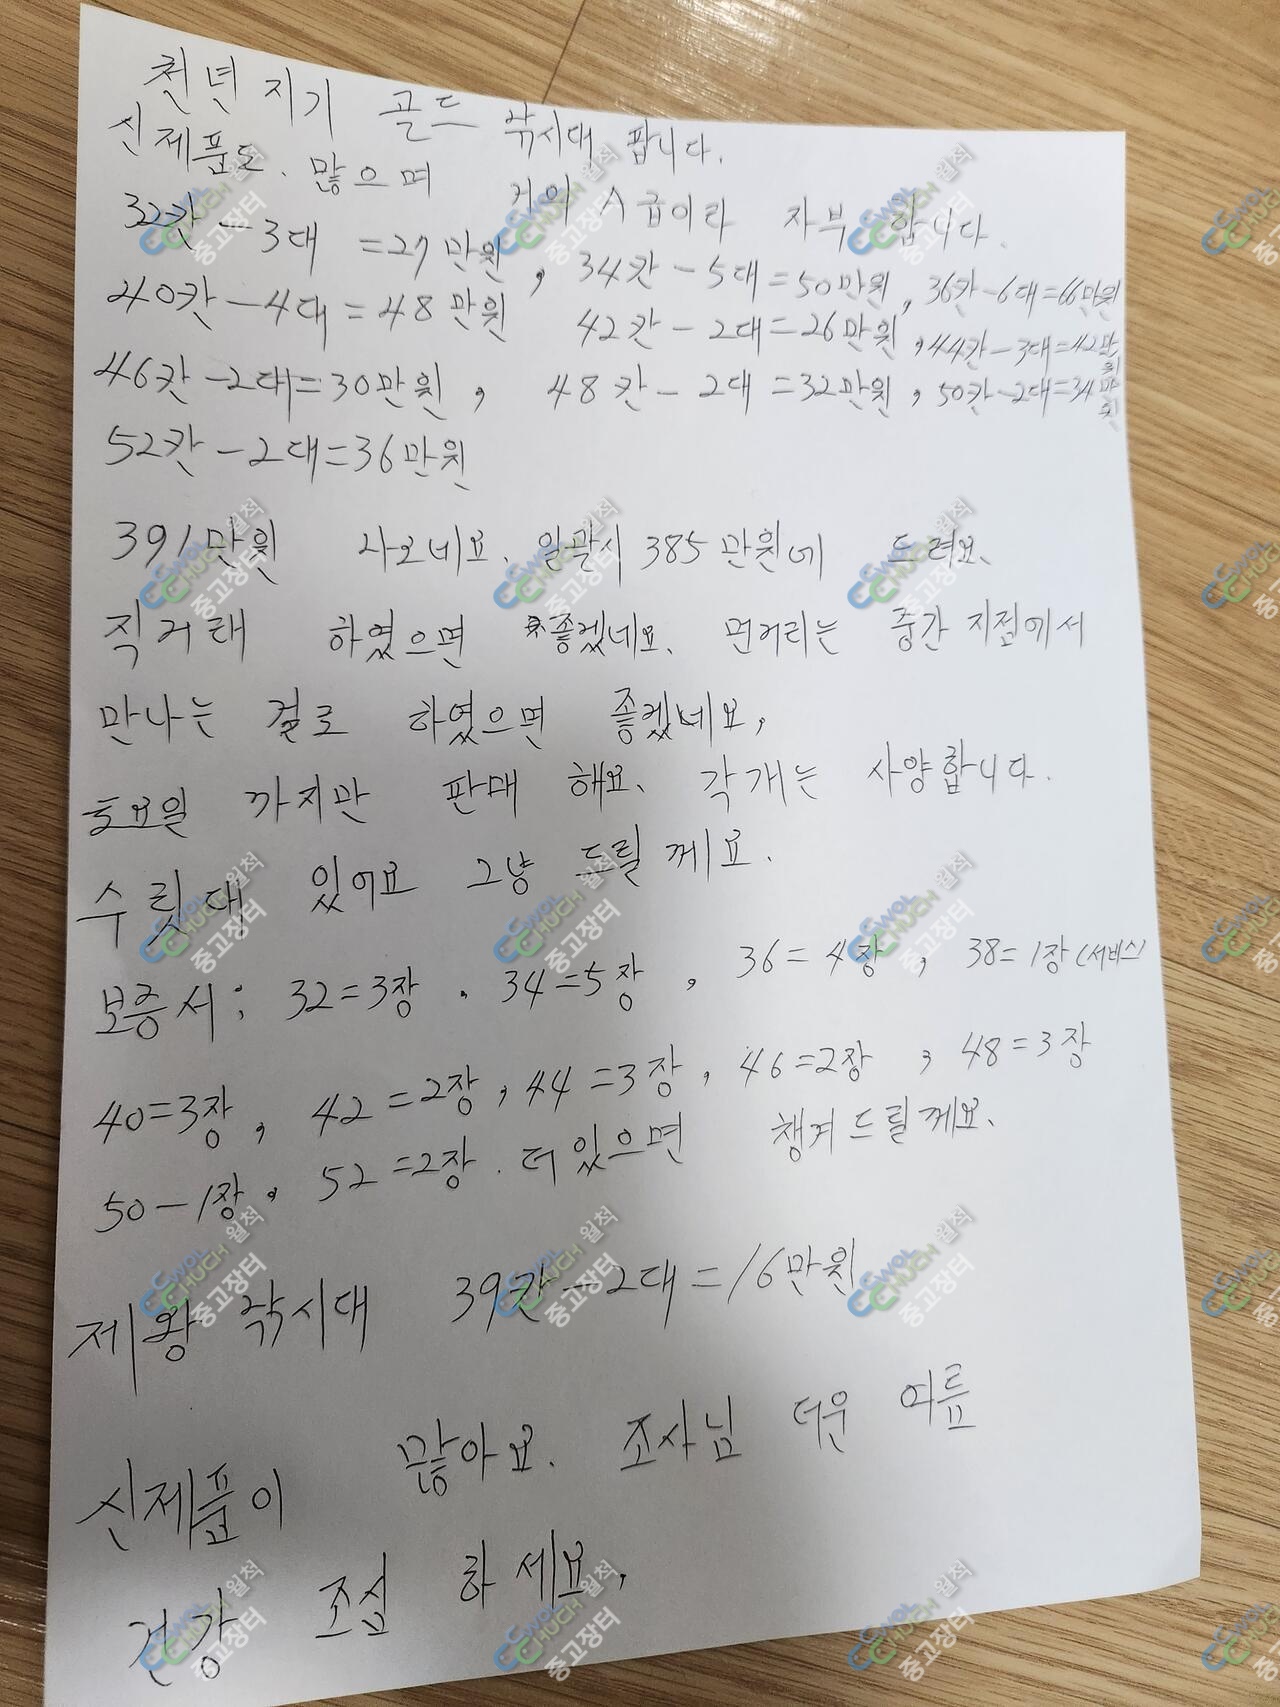 천년지기 골드 낚시대 팝니다.
신제품도 많으며 거의 A급이라 자부 합니다.
32칸-3대=27만원, 34칸-5대=50만원, 36칸-6대=66만원
40칸-4대=48만원 42칸-2대=26만원, 44칸-3대=42만원
46칸-2대=30만원, 48칸-2대=32만원, 50칸-2대=34만원
52칸-2대=36만원
391만원 나오네요. 일괄시 385만원에 드려요.
직거래 하였으면 좋겠네요. 먼거리는 중간 지점에서
만나는 걸로 하였으면 좋겠네요,
토요일 까지만 판매 해요. 각개는 사양합니다.
수릿대 있어요 그냥 드릴께요.
보증서; 32=3장, 34=5장, 36=4장, 38=1장(서비스)
40=3장, 42=2장, 44=3장, 46=2장, 48=3장
50-1장, 52=2장. 더 있으면 챙겨드릴께요.
제왕 낚시대 39칸-2대=16만원
신제품이 많아요. 조사님 더운 여름
건강 조심 하세요,
CWOL CHUCK 월척 중고장터